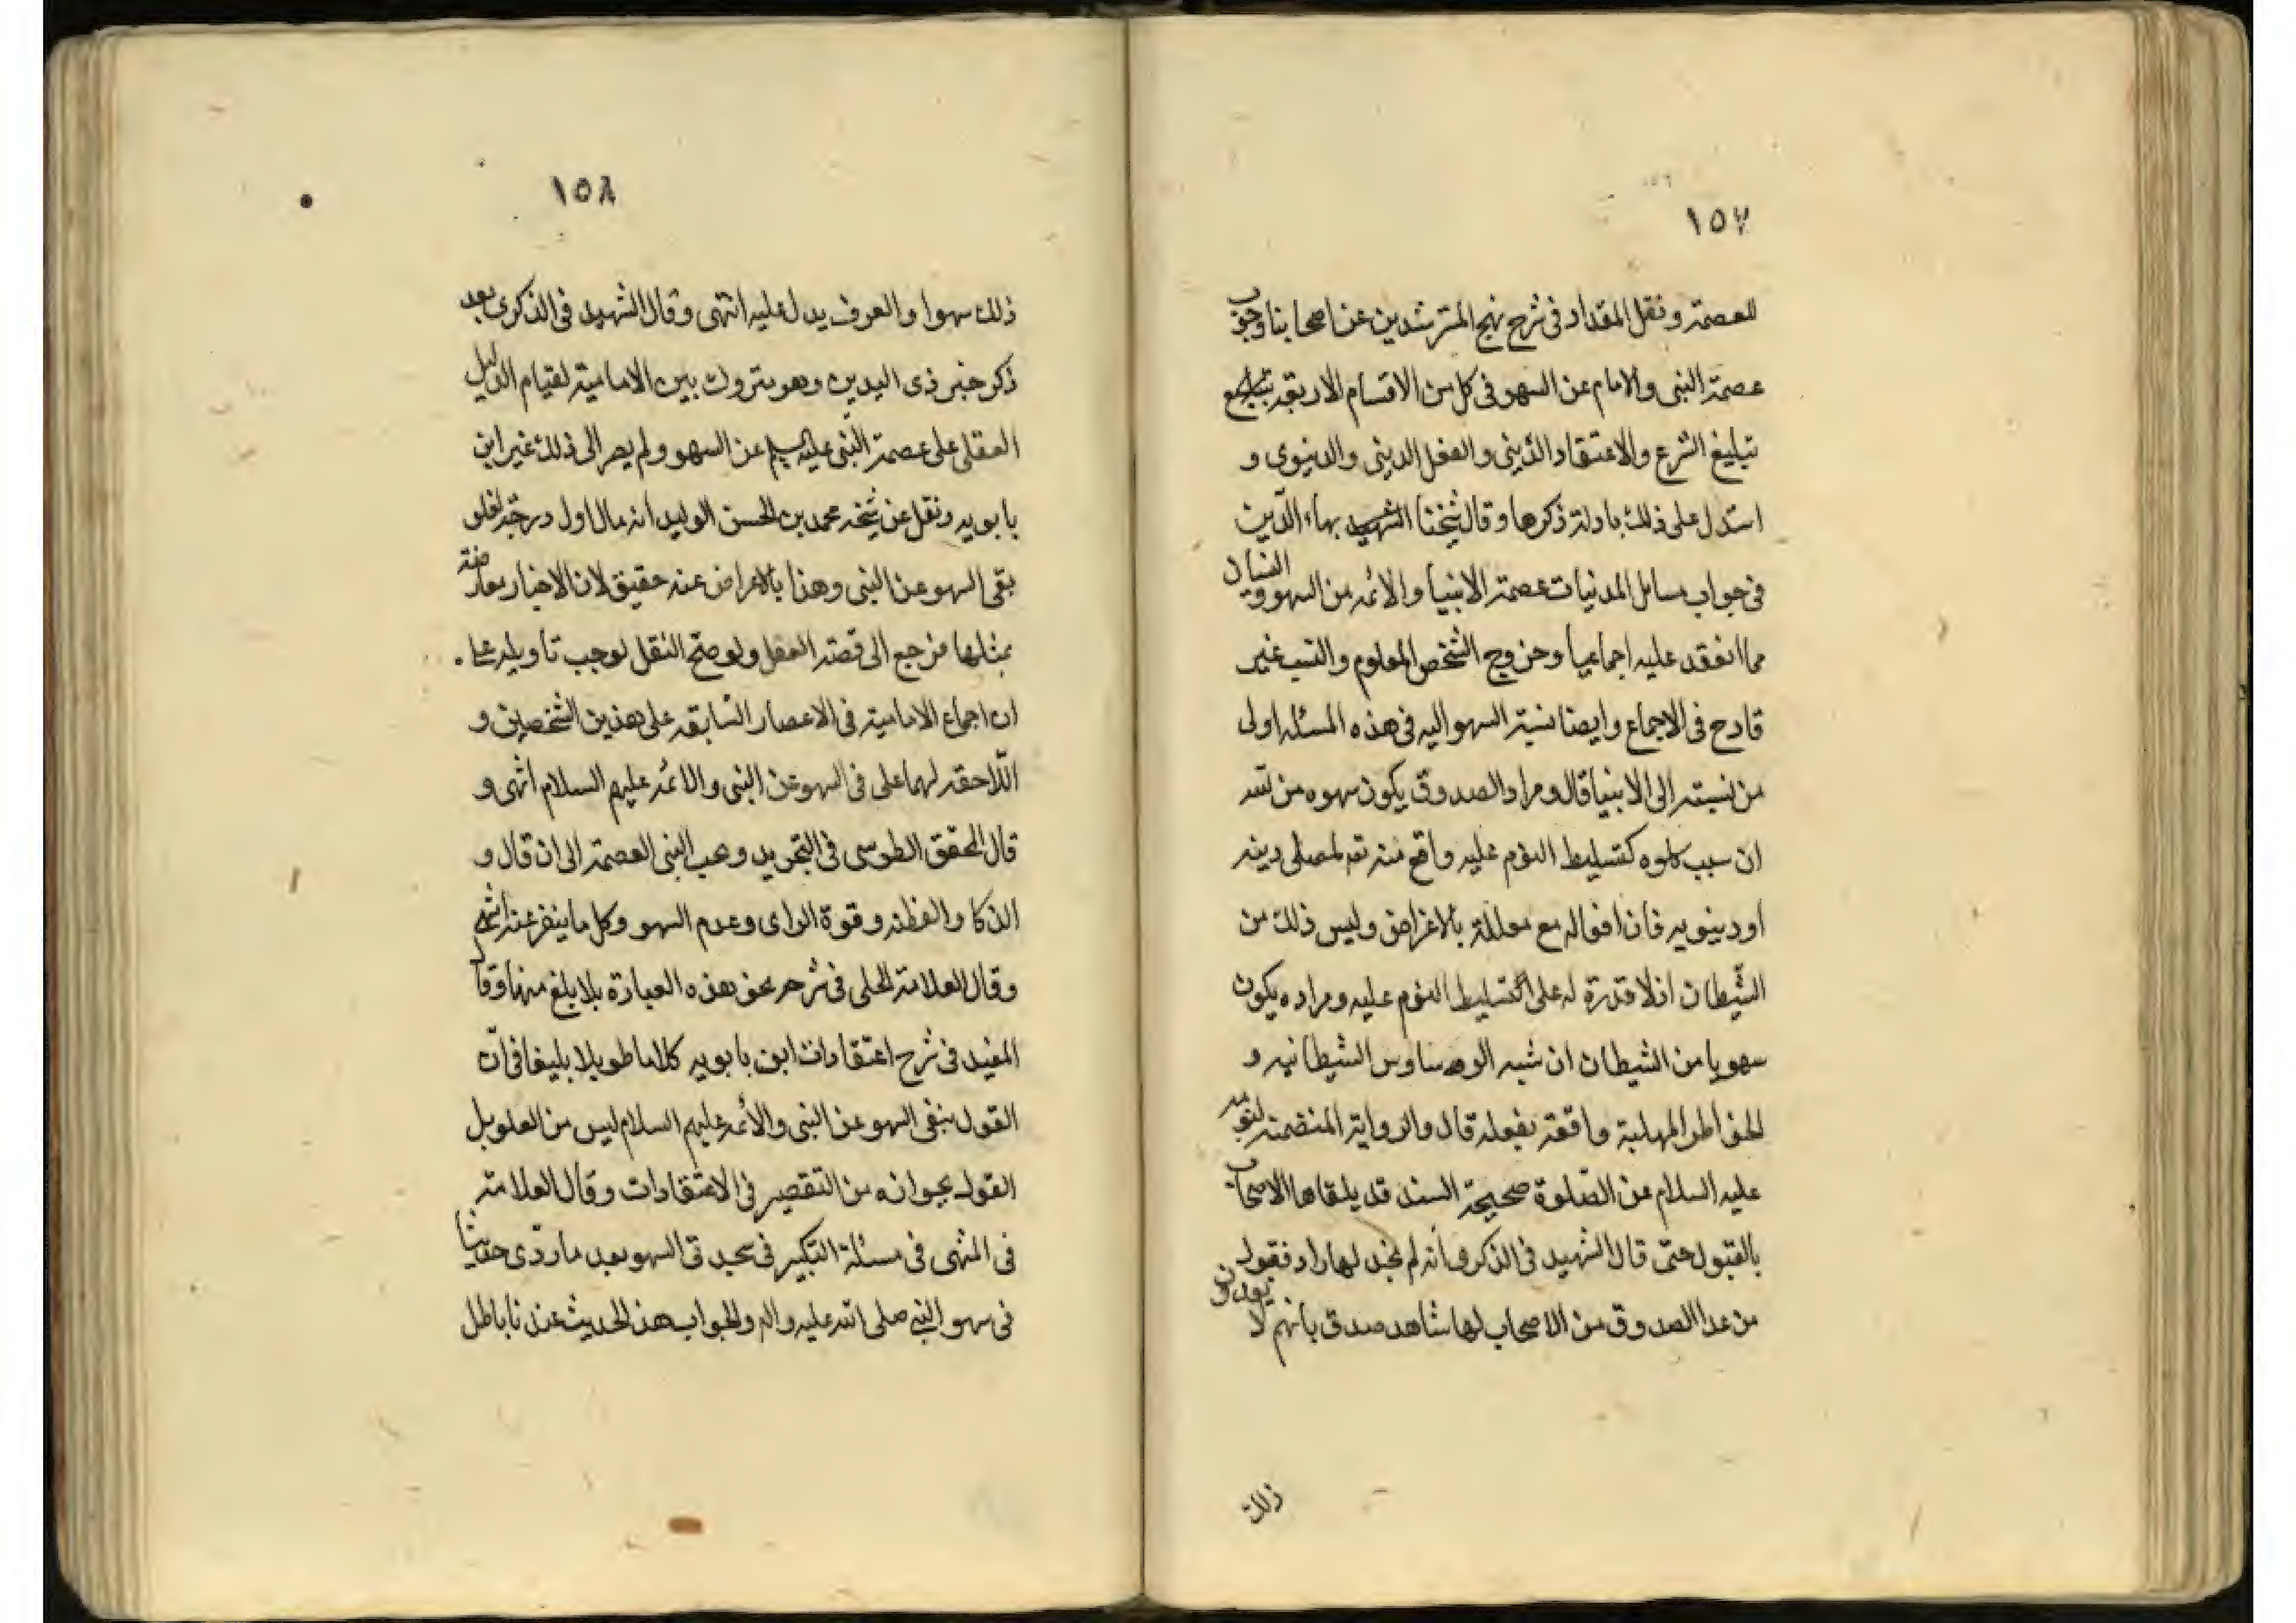 ١٥٧
للعصمة ونقل المقداد فى شرح نهج المسترشدين عن اصحابنا وجوب
عصمة النبى والامام عن السهو فى كل من الاقسام الاربعة
تبليغ الشرع والاعتقاد الدينى والفعل الدينى والدنيوى و
استدل على ذلك بادلة ذكرها وقال شيخنا الشهيد بهاء الدين
فى جواب مسايل المدنيات عصمة الانبيا والائمه من السهو والنسيان
مما انعقد عليه اجماعيا وخروج الشخص المعلوم والنسب غير
قادح فى الاجماع وايضا نسبة السهو اليه فى هذه المسئله اولى
من نسبته الى الانبيا قال ومراد الصدوق يكون سهوه من الله
ان سبب سهوه كتسليط النوم عليه واقع منه تع لمصلى دينه
او دينويه فان افعاله مع معللة بالاغراض وليس ذلك من
الشيطان اذ لا قدرة له على تسليط النوم عليه ومراده يكون
سهويا من الشيطان ان شبه الوساوس الشيطانيه و
الخواطر المهلبة واقعة بفعله قال والرواية المتضمنة لنومه
عليه السلام عن الصلوة صحيحة السند قد يلقاها الاصحاب
بالقبول حتى قال الشهيد فى الذكرى انه لم نجد لها راد فقول
من عدا الصدوق من الاصحاب لها شاهد صدق بانهم لا يعدون
ذلك
١٥٨
ذلك سهوا والعرف يدل عليه انتهى وقال الشهيد فى الذكرى بعد
ذكر خبر ذى اليدين وهو متروك بين الامامية لقيام الدليل
العقلى على عصمة النبى عليه السلم عن السهو ولم يصر الى ذلك غير ابن
بابويه ونقل عن شيخه محمد بن الحسن الوليد انه قال اول درجة الغلو
نفى السهو عن النبى وهذا بالاعراض عنه حقيق لان الاخبار معارضة
بمثلها فرجع الى قصة العقل ولو صح النقل لوجب تأويله على
ان اجماع الامامية فى الاعصار السابقه على هذين الشخصين و
اللاحقة لهما على فى السهو عن النبى والائمه عليهم السلام انتهى و
قال المحقق الطوسى فى التجريد وجب النبى العصمة الى ان قال و
الذكا والفظنه وقوة الراى وعدم السهو وكل ما ينفر عنه انتهى
وقال العلامة الحلى فى شرحه نحو هذه العبارة بلا بلغ منها وقال
المفيد فى شرح اعتقادات ابن بابويه كلاما طويلا بليغا فى ان
القول بنفى السهو عن النبى والائمه عليهم السلام ليس من الغلو بل
القول بجوازه من التقصير فى الاعتقادات وقال العلامة
فى المنتهى فى مسئلة التكبير فى سجدتى السهو بعد ما ردى حديثا
فى سهو النبى صلى الله عليه واله والجواب هذا الحديث عندنا باطل